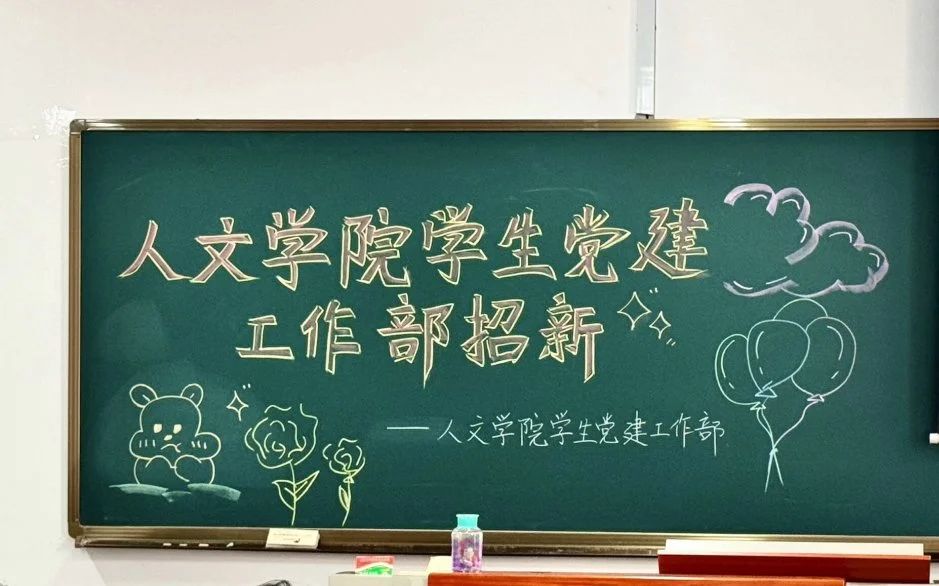 人文学院学生党建
工作部招新
——人文学院学生党建工作部